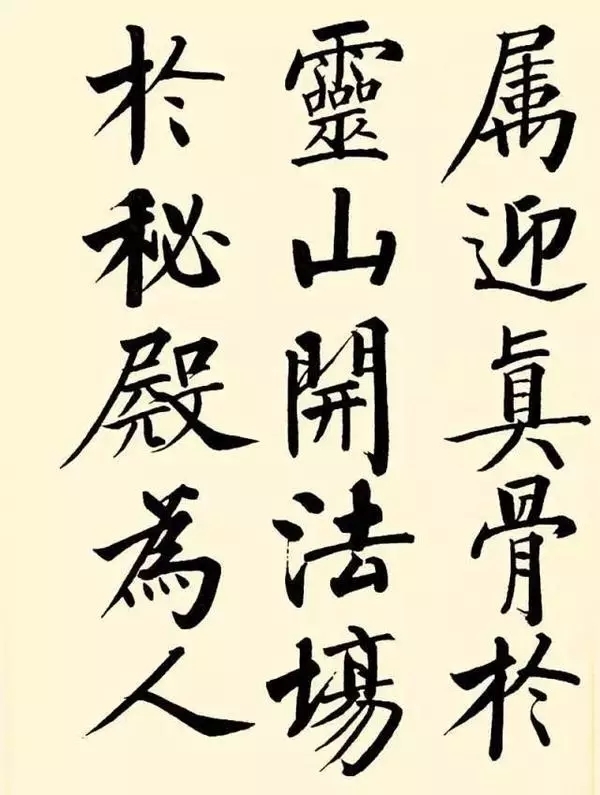 属迎眞骨於
靈山開法場
於秘殿為人